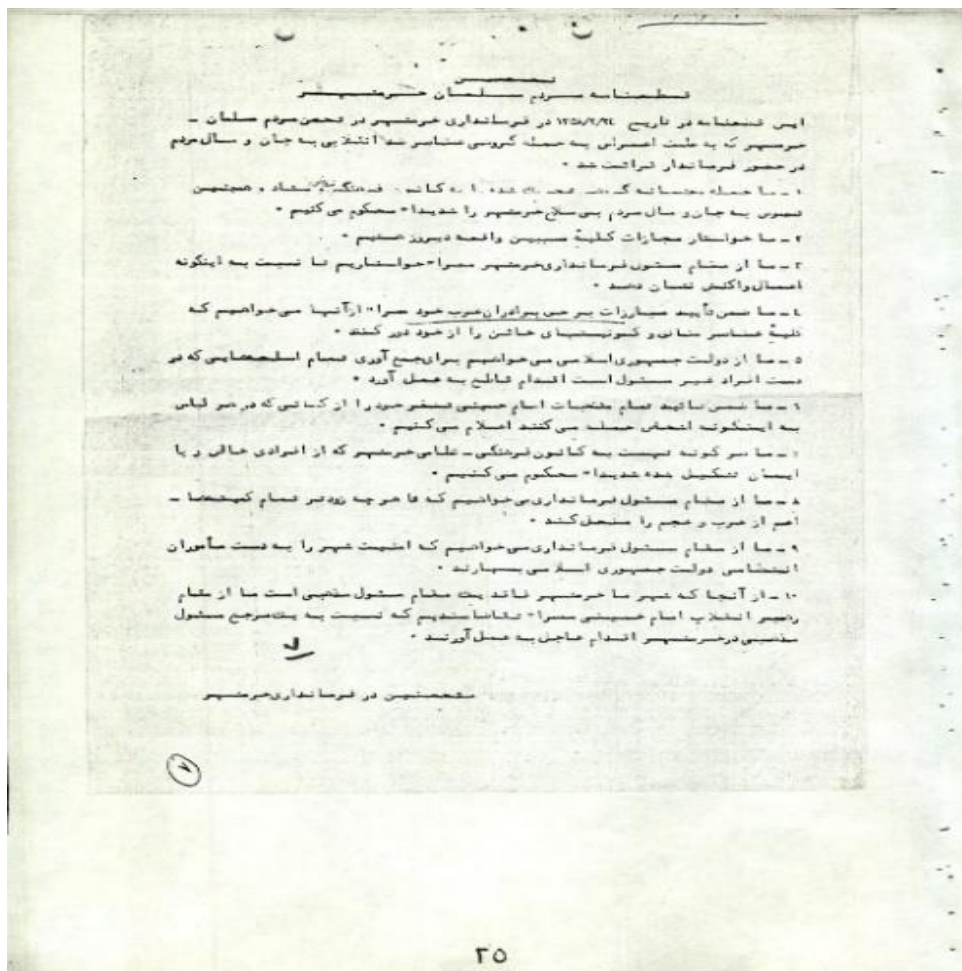 تحصن
قطعنامه مردم مسلمان خرمشهر
این قطعنامه در تاریخ ۱۳۵۸/۲/۲۴ در فرمانداری خرمشهر در تحصن مردم مسلمان -
خرمشهر که به علت اعتراض به حمله گروهی عناصر ضد انقلابی به جان و مال مردم
در حضور فرماندار قرائت شد .
۱ - ما حمله به کانون فرهنگی نظامی ، ستاد ، و همچنین
به جان و مال مردم بی سلاح خرمشهر را شدیداً محکوم می کنیم .
۲ - ما خواستار مجازات کلیهٔ مسببین واقعه دیروز هستیم .
۳ - ما از مقام مسئول فرمانداری خرمشهر مصراً خواستاریم تا نسبت به اینگونه
اعمال واکنش نشان دهد .
٤ - ما ضمن تأیید مبارزات بر حق برادران عرب خود مصراً از آنها می خواهیم که
کلیهٔ عناصر منافق و کمونیستهای خائن را از خود دور کنند .
۵ - ما از دولت جمهوری اسلامی می خواهیم برای جمع آوری تمام اسلحه هایی که در
دست افراد غیر مسئول است اقدام قاطع به عمل آورد .
٦ - ما ضمن تائید تمام امام خمینی تنفر خود را از کسانی که در هر لباس
به اینگونه اشخاص حمله می کنند اعلام می کنیم .
۷ - ما هر گونه به کانون فرهنگی - نظامی خرمشهر که از افرادی و با
ایمان تشکیل شده شدیداً محکوم می کنیم .
۸ - ما از مقام مسئول فرمانداری می خواهیم که تا هر چه زودتر تمام کمیته ها -
اعم از عرب و عجم را منحل کند .
۹ - ما از مقام مسئول فرمانداری می خواهیم که امنیت شهر را به دست مأموران
انتظامی دولت جمهوری اسلامی بسپارند .
۱۰ - از آنجا که شهر ما خرمشهر فاقد یک مقام مسئول مذهبی است ما از مقام
رهبر انقلاب امام خمینی مصراً تقاضامندیم که نسبت به یک مرجع مسئول
مذهبی در خرمشهر اقدام عاجل به عمل آورند .
متحصنین در فرمانداری خرمشهر
۷
۲۵